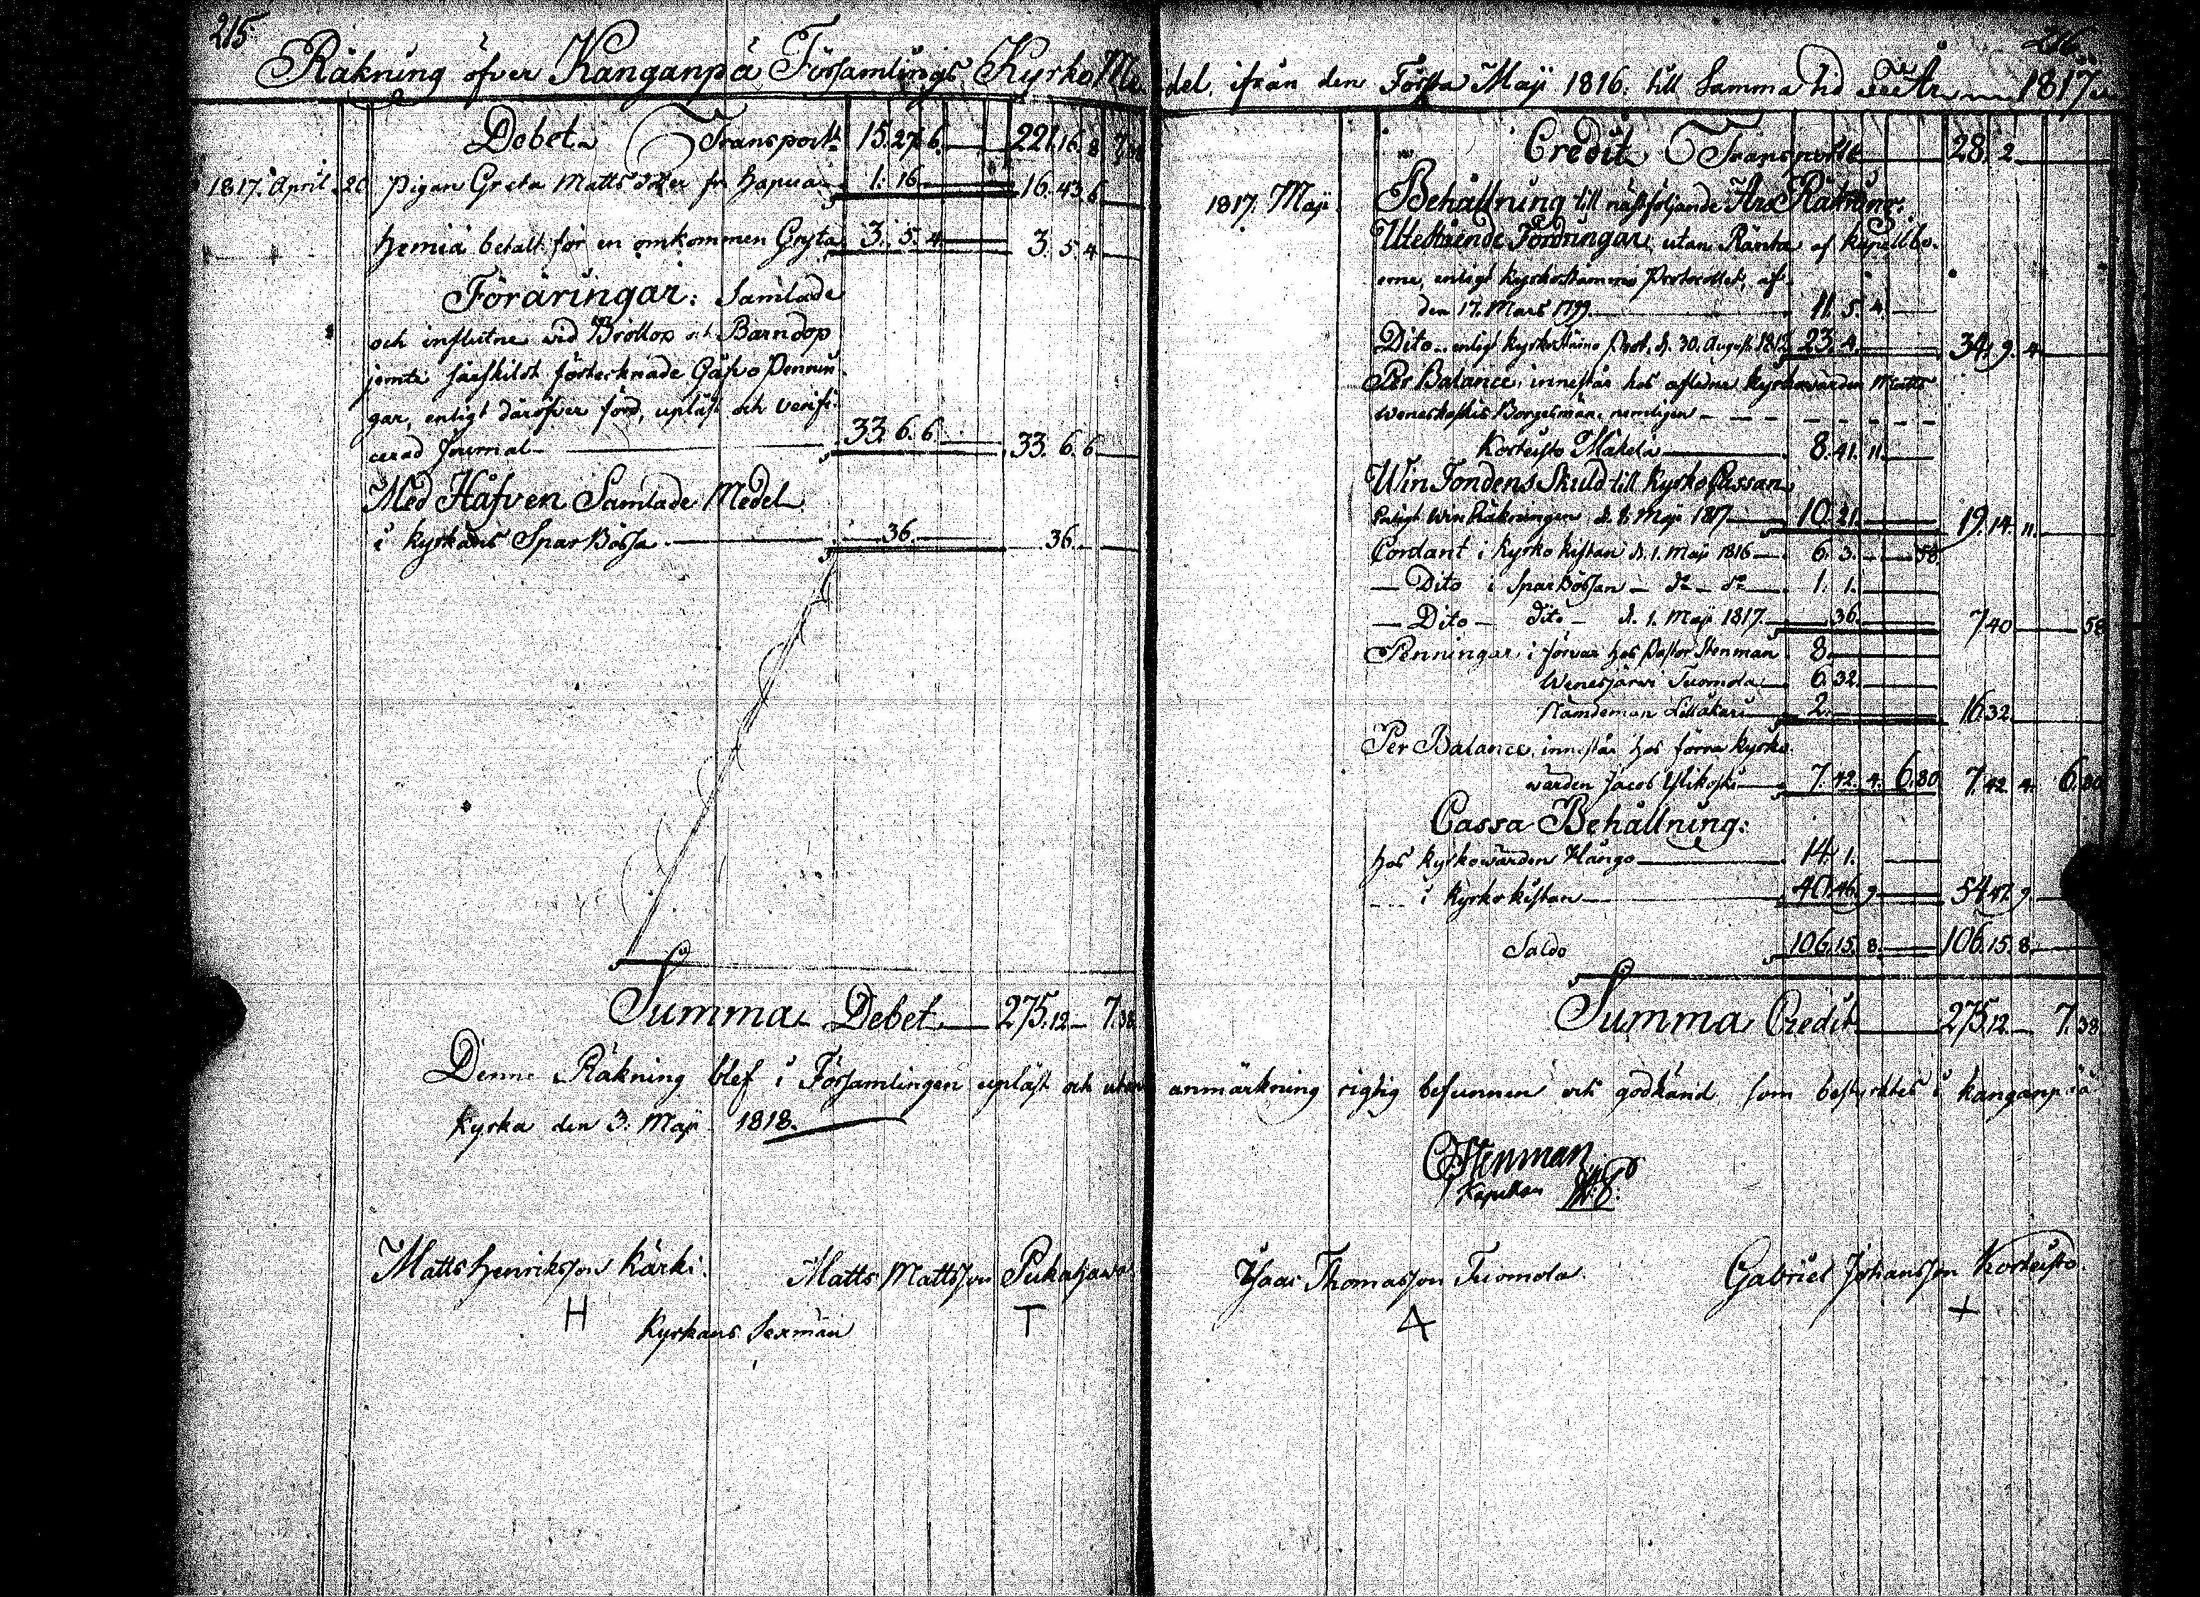 215.
Räkning öfver Kanganpä Församlings Kyrko Me
Debet. Transport 15. 27. 6. 221. 16. 8 7.38
1817. April. 20. Pigan Greta Matts doter fr. Hapua 1. 16 16. 43. 6
Hemiä betalt för en omkommen Gryta 3. 5. 4. 3. 5. 4
Föräringar: Samlade
och influtne vid Bröllop och Barndop
jemte särskildt förtecknade Gåfvo Pennin
gar, enligt däröfver förd, upläst och verifi-
cerad Journal 33. 6. 6. 33. 6. 6
Med Håfven Samlade Medel
i Kyrkans Spar Bössa 36. 36.
Summa Debet 275. 12 7.38
Denne Räkning blef i Församlingen upläst och utan
Kyrka den 3. Maji 1818.
Matts Henriksson Kärki. Matts Mattsson Pukajärvi
H T
Kyrkans Sexmän
216.
del, ifrån den Första Maji 1816. till Samma tid År 1817
Credit Transporte 28. 2
1817. Maji Behållning till nästföljande Års Räkning.
Utestående Fordringar, utan Ränta af Kapellbo-
erne, enligt Kyrkostämmo Protocollet, af
den 17. Mars 1799. 11. 5. 4.
Dito enligt Kyrkostämo Prot. d. 30. August. 1812 23. 4. 34. 9. 4
Per Balance, innestår hos afledne Kyrkovärden Matts
Weneskoskis Borgesmän, nemligen
Korteisto Mäkelä 8. 41. 11.
Win Fondens Skuld till Kyrko Cassan
Enligt Win Räkningen d. 1. Maji 1817 10. 21. 19. 14. 11.
Contant i Kyrko Kistan d. 1. Maji 1816 6. 3. 58
Dito i Spar Bössan do do 1. 1.
Dito dito d. 1. Maji 1817. 36. 7.40 58
Penningar i förvar hos Pastor Stenman 8.
Wenesjärvi Tuomola 6. 32.
Nämdeman Lilläkari 2. 16. 32
Per Balance, innestår hos förra Kyrko
värden Jacob Ylikoski 7. 42. 4. 6.80 7. 42. 4. 6.80
Cassa Behållning:
hos Kyrkowärden Hångo 14. 1.
i Kyrko kistan 40. 46. 9 54. 47. 9.
Saldo 106. 15. 8. 106. 15. 8
Summa Credit 275. 12. 7.38
anmärkning rigtig befunnen och godkänd, som bestyrktes i Kanganpää
CStenman
Kapellan
Isaac Thomasson Tuomola. Gabriel Johansson Korteisto.
4 +